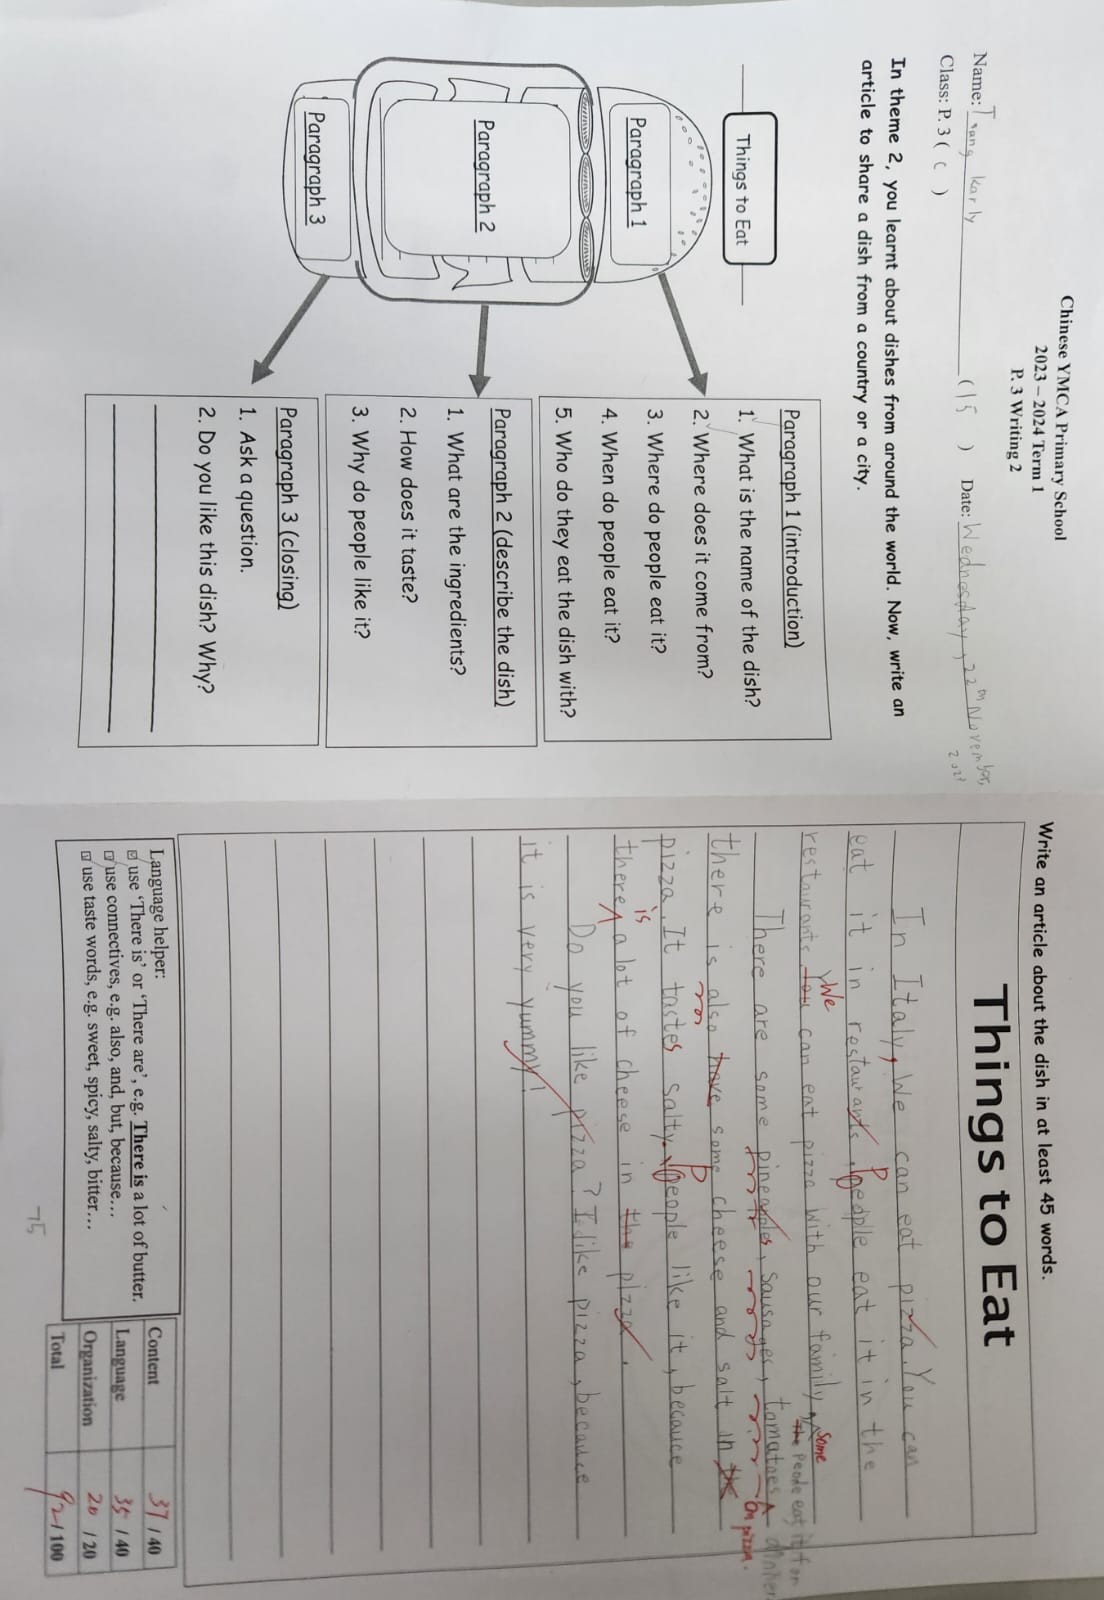 Chinese YMCA Primary School
2023 – 2024 Term 1
P. 3 Writing 2
Name: Tsang Karly (15) Date: Wednesday, 22nd November,
Class: P. 3 ( C )
In theme 2, you learnt about dishes from around the world. Now, write an
article to share a dish from a country or a city.
Things to Eat
Paragraph 1
Paragraph 2
Paragraph 3
Paragraph 1 (introduction)
1. What is the name of the dish?
2. Where does it come from?
3. Where do people eat it?
4. When do people eat it?
5. Who do they eat the dish with?
Paragraph 2 (describe the dish)
1. What are the ingredients?
2. How does it taste?
3. Why do people like it?
Paragraph 3 (closing)
1. Ask a question.
2. Do you like this dish? Why?
Write an article about the dish in at least 45 words.
Things to Eat
In Italy, We can eat pizza. You can
eat it in restaurants. people eat it in the
P
restaurants. You can eat pizza with our family.
We
Some
The Peode eat it for
dinner
There are some pineapples, sausages, tomatoes
on pizza.
there is also have some cheese and salt in the
pizza. It tastes salty. people like it, because
P
there a lot of cheese in the pizza.
is
Do you like pizza? I like pizza, because
it is very yummy!
Language helper:
☑ use 'There is' or 'There are', e.g. There is a lot of butter.
☑ use connectives, e.g. also, and, but, because…
☑ use taste words, e.g. sweet, spicy, salty, bitter…
75
Content 37 / 40
Language 35 / 40
Organization 20 / 20
Total 92 / 100